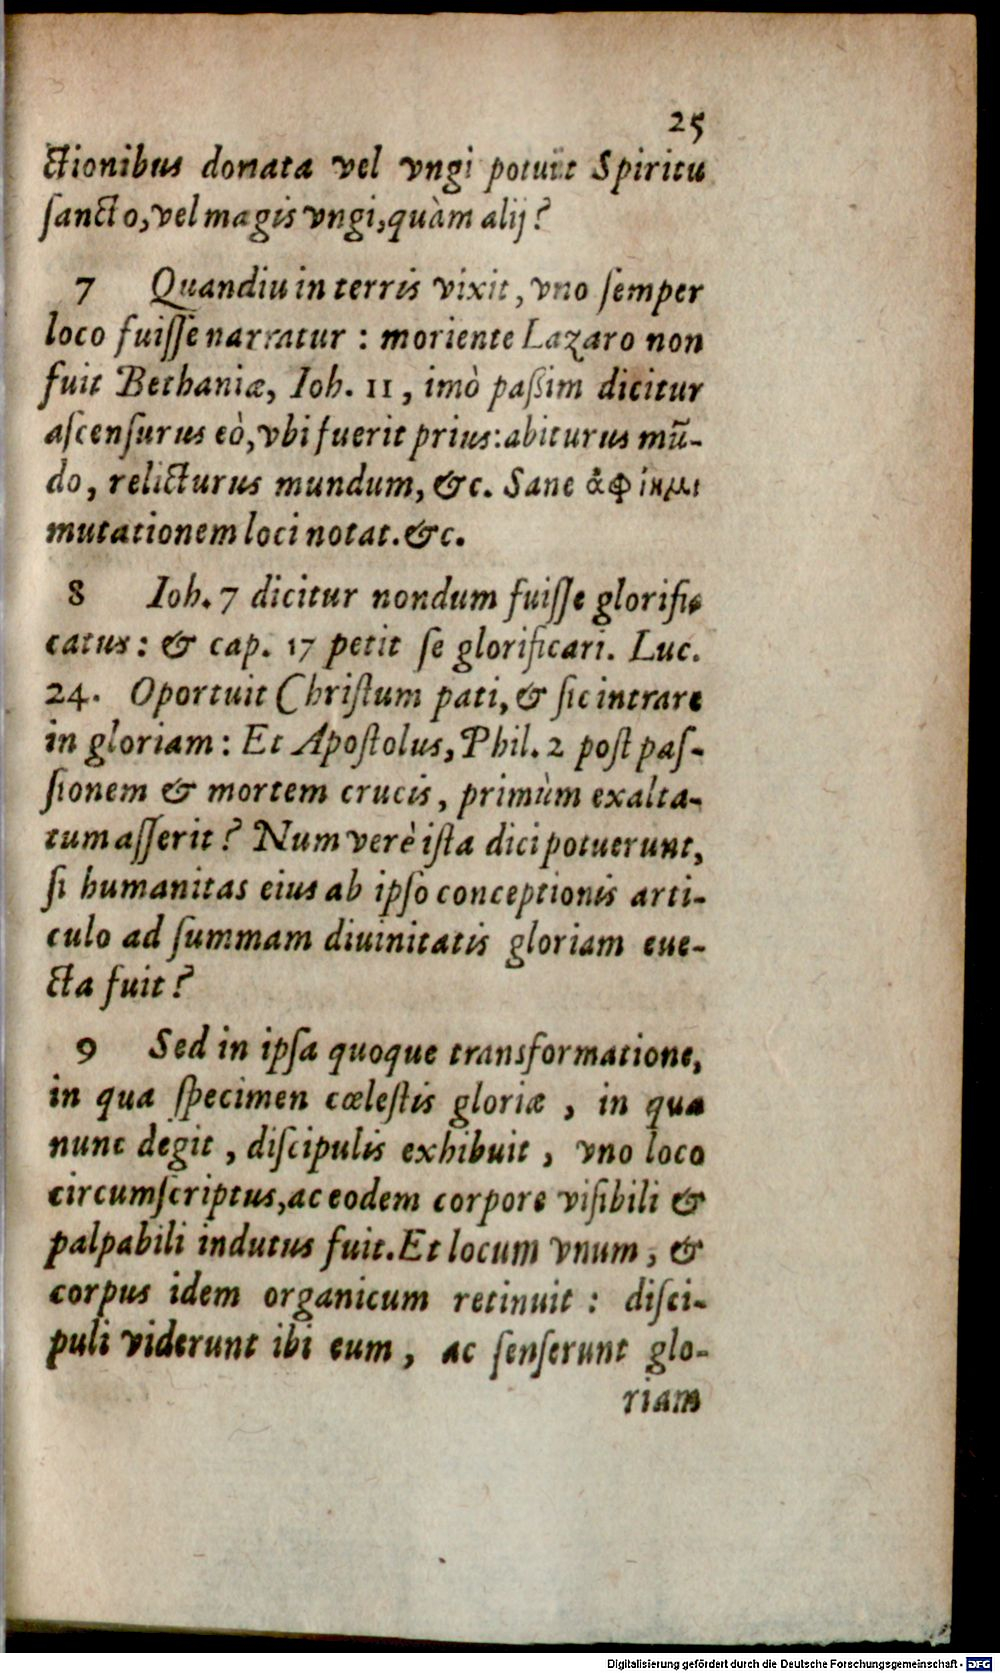 25
ctionibus donata vel vngi potuit Spiritu
ſancto, vel magis vngi, quàm alij?
7 Quandiu in terris vixit, vno ſemper
loco fuiſſe narratur: moriente Lazaro non
fuit Bethaniæ, Ioh. 11, imò paßim dicitur
aſcenſurus eò, vbi fuerit prius: abiturus mũ-
do, relicturus mundum, &c. Sane ἀφίημι
mutationem loci notat. &c.
8 Ioh. 7 dicitur nondum fuiſſe glorifi-
catus: & cap. 17 petit ſe glorificari. Luc.
24. Oportuit Chriſtum pati, & ſic intrare
in gloriam: Et Apoſtolus, Phil. 2 poſt paſ-
ſionem & mortem crucis, primùm exalta-
tum aſſerit? Num verè iſta dici potuerunt,
ſi humanitas eius ab ipſo conceptionis arti-
culo ad ſummam diuinitatis gloriam eue-
cta fuit?
9 Sed in ipſa quoque transformatione,
in qua ſpecimen cœleſtis gloriæ, in qua
nunc degit, diſcipulis exhibuit, vno loco
circumſcriptus, ac eodem corpore viſibili &
palpabili indutus fuit. Et locum vnum, &
corpus idem organicum retinuit: diſci-
puli viderunt ibi eum, ac ſenſerunt glo-
riam
Digitalisierung gefördert durch die Deutsche Forschungsgemeinschaft - DFG